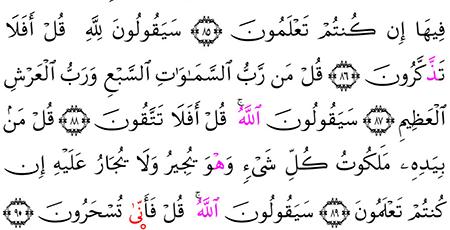 فِيهَا إِن كُنتُمْ تَعْلَمُونَ ﴿٨٥﴾ سَيَقُولُونَ لِلَّهِ قُلْ أَفَلَا
تَذَّكَّرُونَ ﴿٨٦﴾ قُلْ مَن رَّبُّ ٱلسَّمَٰوَٰتِ ٱلسَّبْعِ وَرَبُّ ٱلْعَرْشِ
ٱلْعَظِيمِ ﴿٨٧﴾ سَيَقُولُونَ ٱللَّهُۚ قُلْ أَفَلَا تَتَّقُونَ ﴿٨٨﴾ قُلْ مَنۢ
بِيَدِهِۦ مَلَكُوتُ كُلِّ شَيْءٖ وَهْوَ يُجِيرُ وَلَا يُجَارُ عَلَيْهِ إِن
كُنتُمْ تَعْلَمُونَ ﴿٨٩﴾ سَيَقُولُونَ ٱللَّهُۚ قُلْ فَأَنّٜىٰ تُسْحَرُونَ ﴿٩٠﴾